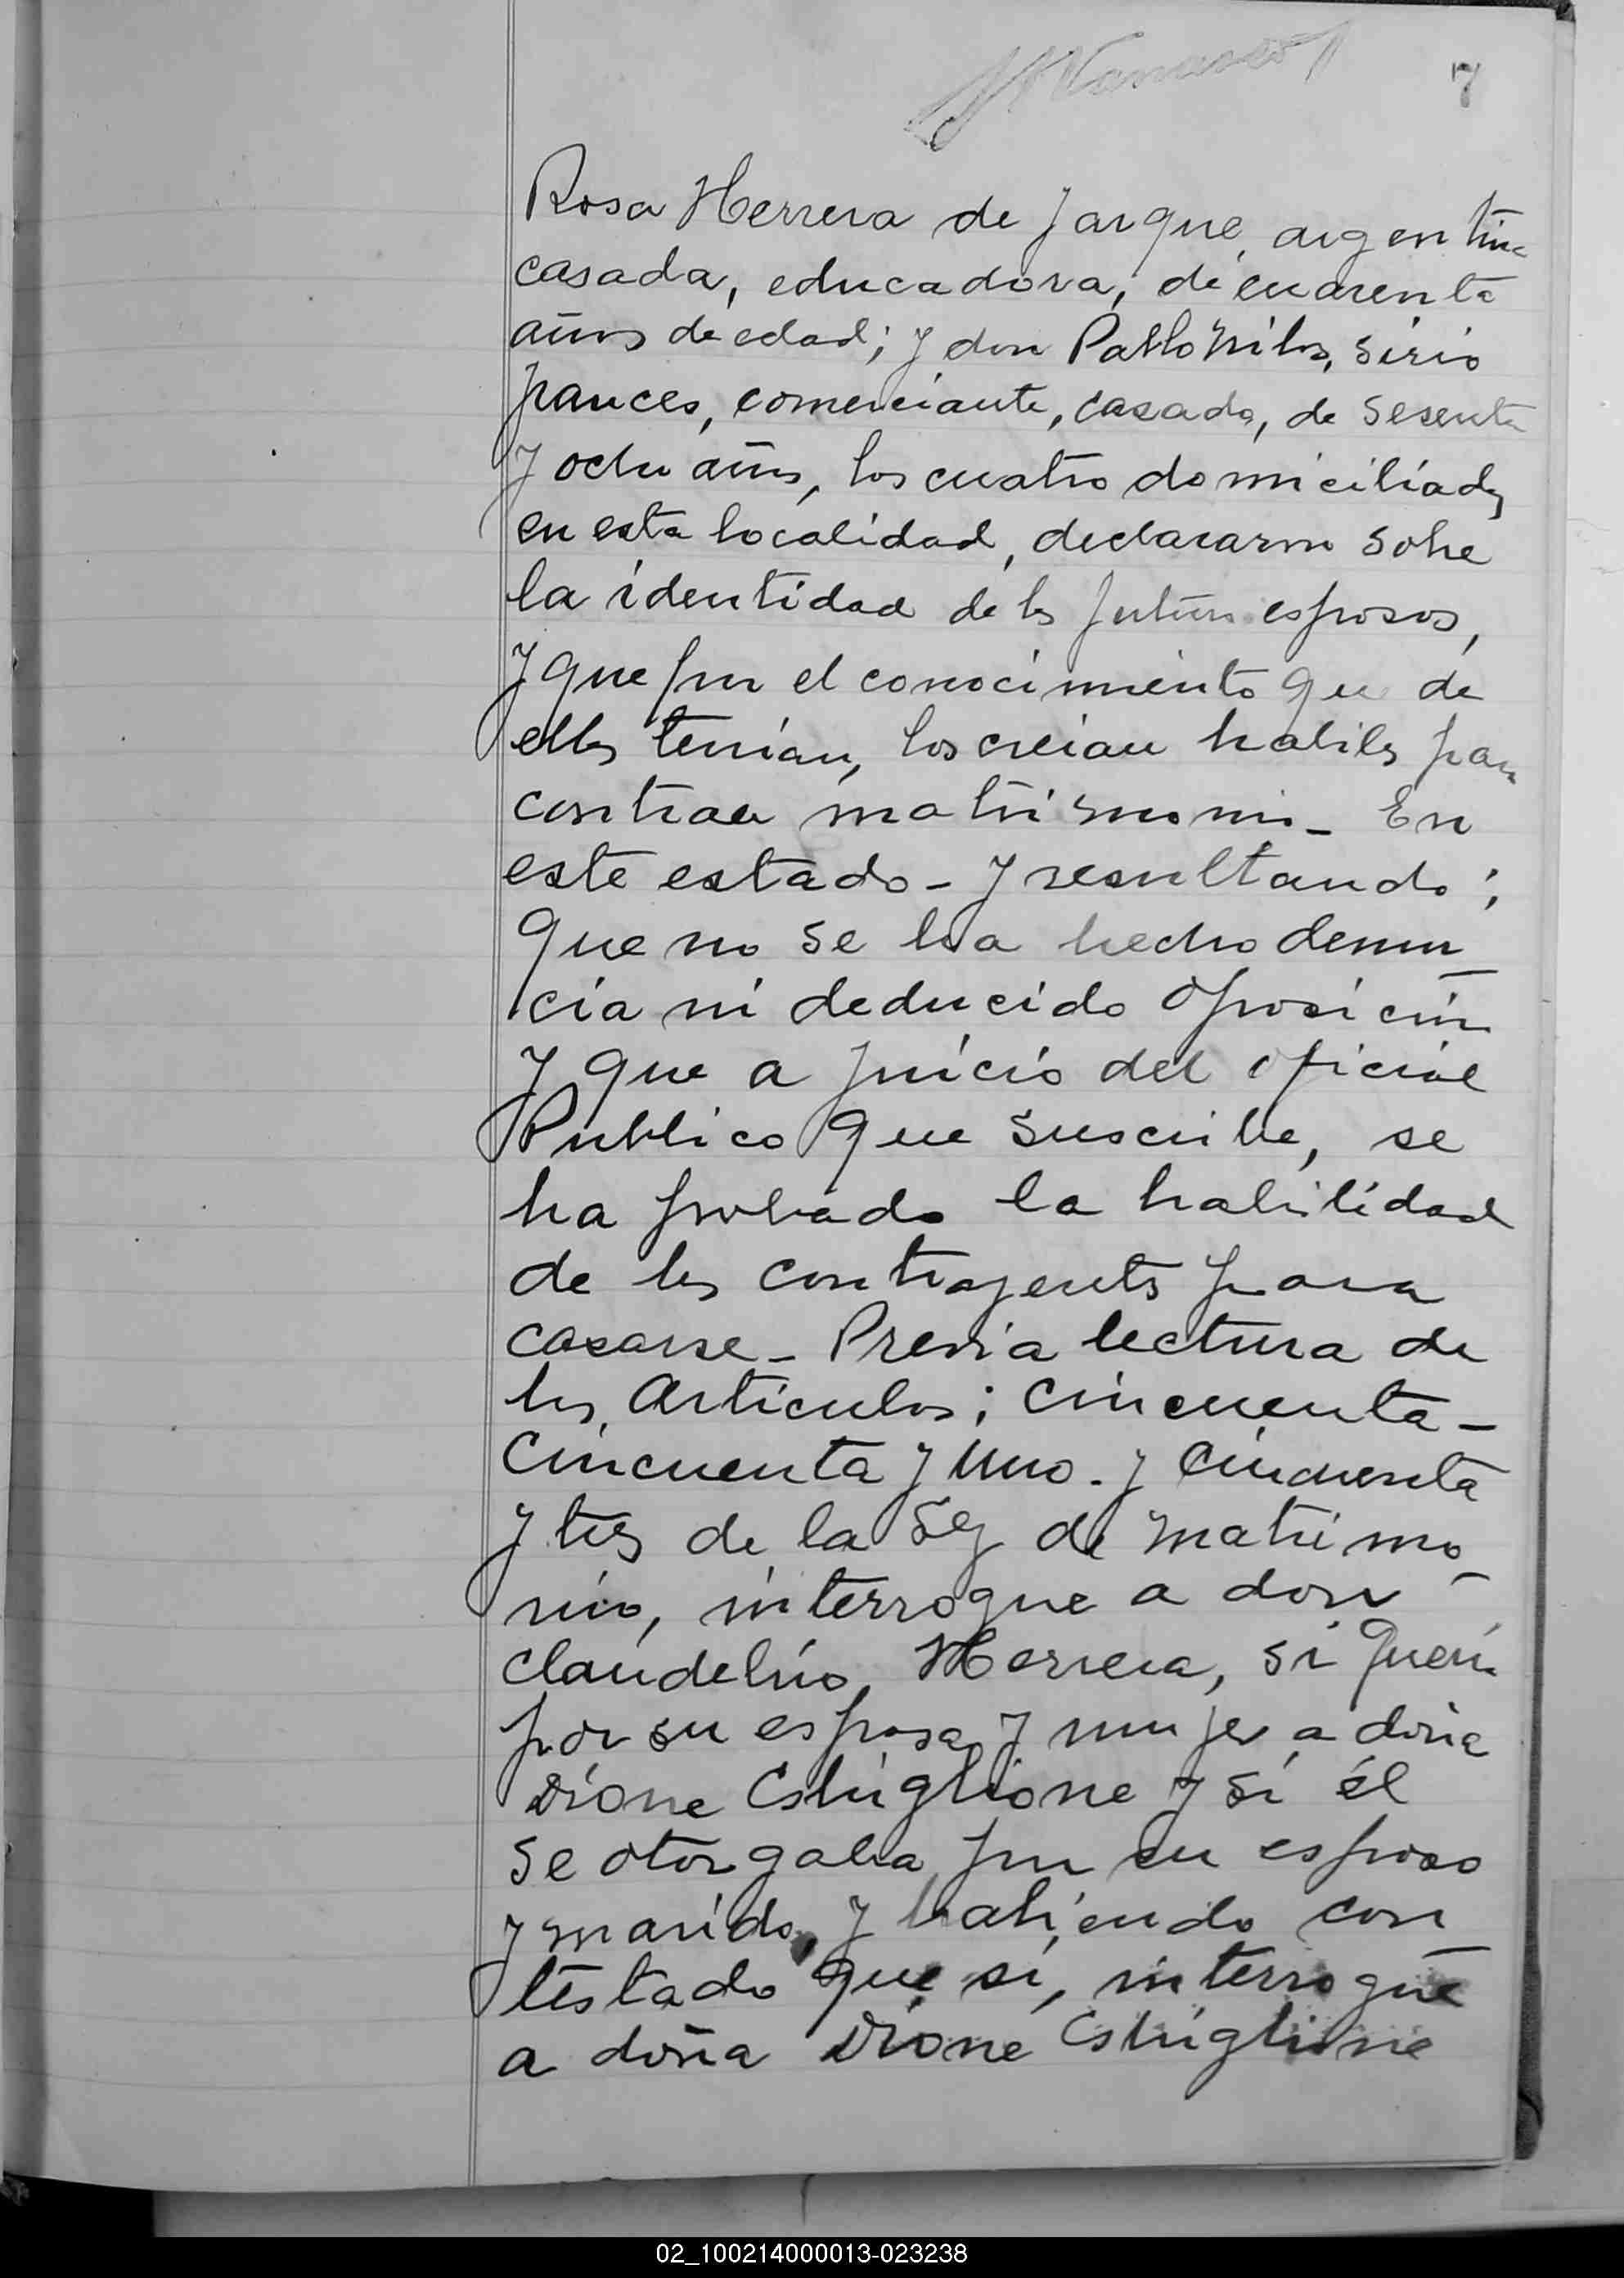 7
Rosa Herrera de Jarque, argentina
casada, educadora, de cuarenta
años de edad; y don Pablo Milos, sirio
frances, comerciante, casado, de sesenta
y ocho años, los cuatro domiciliados
en esta localidad, declararon sobre
la identidad de los futuros esposos,
y que por el conocimiento que de
ellos tenian, los creian habiles para
contraer matrimonio_ En
este estado - y resultando;
Que no se ha hecho denun_
cia ni deducido oposición
y que a juicio del oficial
Publico que suscribe, se
ha probado la habilidad
de los contrayents para
casarse_ Previa lectura de
los, Articulos; cincuenta_
Cincuenta y uno. y Cincuenta
y tres de la Ley de matrimo_
nio, interrogue a don
Claudelino, Herrera, si queria
por su esposa y mujer a doña
Dione Estiglione y si él
se otorgaba por su esposo
y marido, y habiendo con_
testado que si, interrogué
a doña Dione Estiglione
02_100214000013-023238